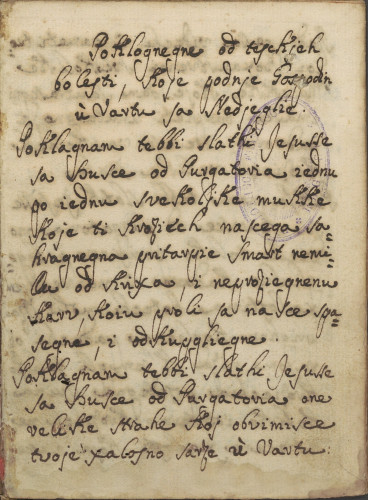 Poklognegne od tesckjeh
bolesti, koje podnje Gospodin
ù Vartu sa Nedjeglie.
Poklagnam tebbi slatki Jesusse
sa Dusce od Purgatoria iednu
po iednu svekolike mukke
koje ti
pritarpie Smart nemi=
od Krixa, i neprozjegnenu
Karv, koiu proli sa nasce spa=
segne, i odkuppgliegne.
Poklagnam tebbi slatki Jesusse
sa Dusce od Purgatoria one
velike strahe koj obvimisce
tvoje xalosno sarze ù Vartu: